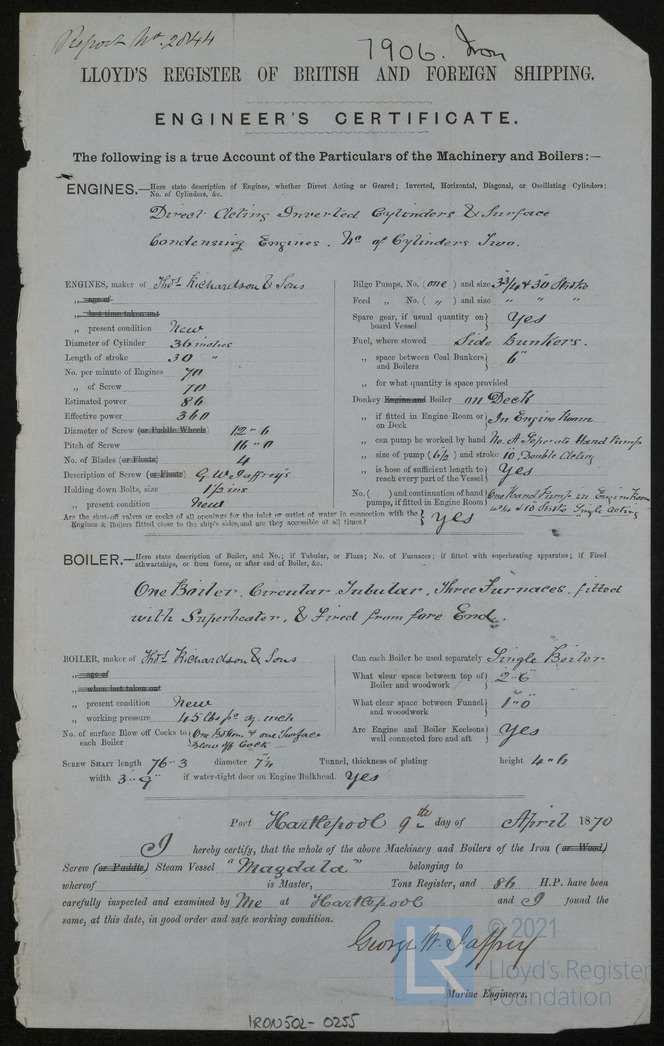 Report No. 2844
7906. Iron
LLOYD'S REGISTER OF BRITISH AND FOREIGN SHIPPING.
ENGINEER'S CERTIFICATE.
The following is a true Account of the Particulars of the Machinery and Boilers:—
ENGINES.—Here state description of Engines, whether Direct Acting or Geared; Inverted, Horizontal, Diagonal, or Oscillating Cylinders;
No. of Cylinders, &c.
Direct Acting Inverted Cylinders & Surface
Condensing Engines. No of Cylinders Two.
ENGINES, maker of Thos Richardson & Sons
„ age of
„ last time taken out
„ present condition New
Diameter of Cylinder 36 inches
Length of stroke 30 "
No. per minute of Engines 70
„ of Screw 70
Estimated power 86
Effective power 360
Diameter of Screw (or Paddle Wheels) 12 " 6
Pitch of Screw 16 " 0
No. of Blades (or Floats) 4
Description of Screw (or Floats) G. W. Jaffrey's
Holding down Bolts, size 1 1/2 ins
„ present condition New
Bilge Pumps, No. (one) and size 3 3/4 & 30 Stroke
Feed „ No. ( „ ) and size " " "
Spare gear, if usual quantity on board Vessel } Yes
Fuel, where stowed Side Bunkers.
„ space between Coal Bunkers and Boilers } 6"
„ for what quantity is space provided
Donkey Engine and Boiler on Deck
„ if fitted in Engine Room or on Deck } In Engine Room
„ can pump be worked by hand No. A Seperate Hand Pump
„ size of pump (6 1/2) and stroke 10, Double Acting
„ is hose of sufficient length to reach every part of the Vessel } Yes
No. ( ) and continuation of hand pumps, if fitted in Engine Room } One Hand Pump in Engine Room
4 & 10 Stroke Single Acting
Are the shut-off valves or cocks of all openings for the inlet or outlet of water in connection with the
Engines & Boilers fitted close to the ship's sides, and are they accessible at all times? } Yes
BOILER.—Here state description of Boiler, and No.; if Tubular, or Flues; No. of Furnaces; if fitted with superheating apparatus; if Fired
athwartships, or from force, or after end of Boiler, &c.
One Boiler, Circular Tubular, Three Furnaces, fitted
with Superheater, & Fired from fore End.
BOILER, maker of Thos Richardson & Sons
„ age of
„ when last taken out
„ present condition New
„ working pressure 45 lbs pr sq. inch
No. of surface Blow off Cocks to each Boiler } One Bottom & one Surface
Blow off Cock
Can each Boiler be used separately Single Boiler
What clear space between top of Boiler and woodwork } 2 - 6"
What clear space between Funnel and wooodwork } 1" 0"
Are Engine and Boiler Keelsons well connected fore and aft } Yes
SCREW SHAFT length 76 - 3 diameter 7 1/4 Tunnel, thickness of plating height 4 " 6
width 3 - 9" if water-tight door on Engine Bulkhead. Yes
Port Hartlepool 9th day of April 1870
I hereby certify, that the whole of the above Machinery and Boilers of the Iron (or Wood,)
Screw (or Paddle) Steam Vessel "Magdala" belonging to
whereof is Master, Tons Register, and 86 H.P. have been
carefully inspected and examined by Me at Hartlepool and I found the
same, at this date, in good order and safe working condition.
George W. Jaffrey
Marine Engineers.
LR © 2021
Lloyd's Register
Foundation
IRON502-0255